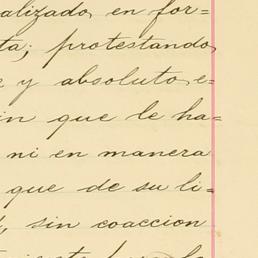 alizado en for=
ta; protestando
e y absoluto e-
in que le ha=
ni en manera
que de su li=
, sin coaccion